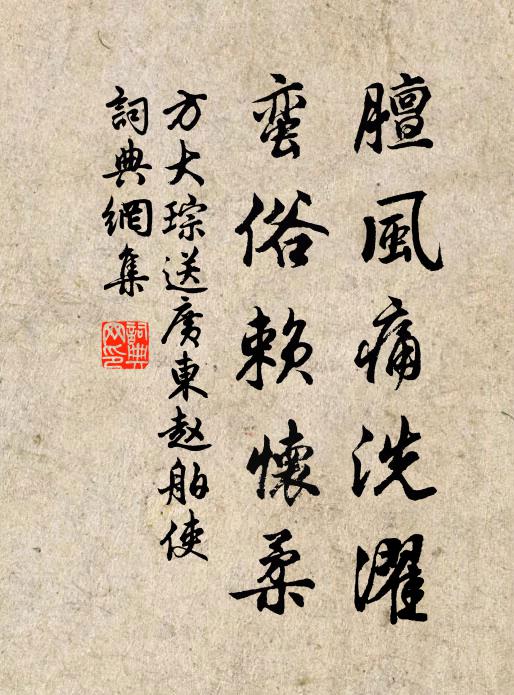 膻風痛洗濯
蛮俗赖懷柔
方大琮送廣東赵舶使
詞典網集
詞典网印